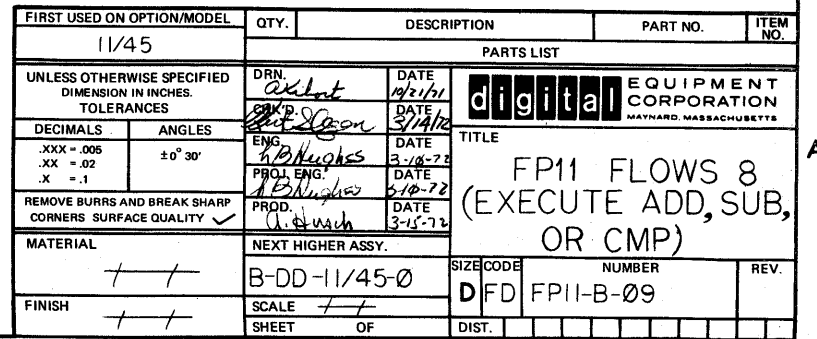 FIRST USED ON OPTION/MODEL
11/45
QTY.
DESCRIPTION
PART NO.
ITEM NO.
PARTS LIST
UNLESS OTHERWISE SPECIFIED
DIMENSION IN INCHES.
TOLERANCES
DECIMALS
ANGLES
.XXX = .005
.XX = .02
.X = .1
±0° 30'
REMOVE BURRS AND BREAK SHARP
CORNERS SURFACE QUALITY
MATERIAL
FINISH
DRN.
DATE
10/21/71
CHK'D.
DATE
3/14/72
ENG.
L B Hughes
DATE
3-10-72
PROJ. ENG.
L B Hughes
DATE
3-10-72
PROD.
DATE
3-15-72
NEXT HIGHER ASSY.
B-DD-11/45-0
SCALE
SHEET OF
digital
EQUIPMENT
CORPORATION
MAYNARD, MASSACHUSETTS
TITLE
FP11 FLOWS 8
(EXECUTE ADD, SUB,
OR CMP)
SIZE
D
CODE
FD
NUMBER
FP11-B-09
REV.
DIST.
A